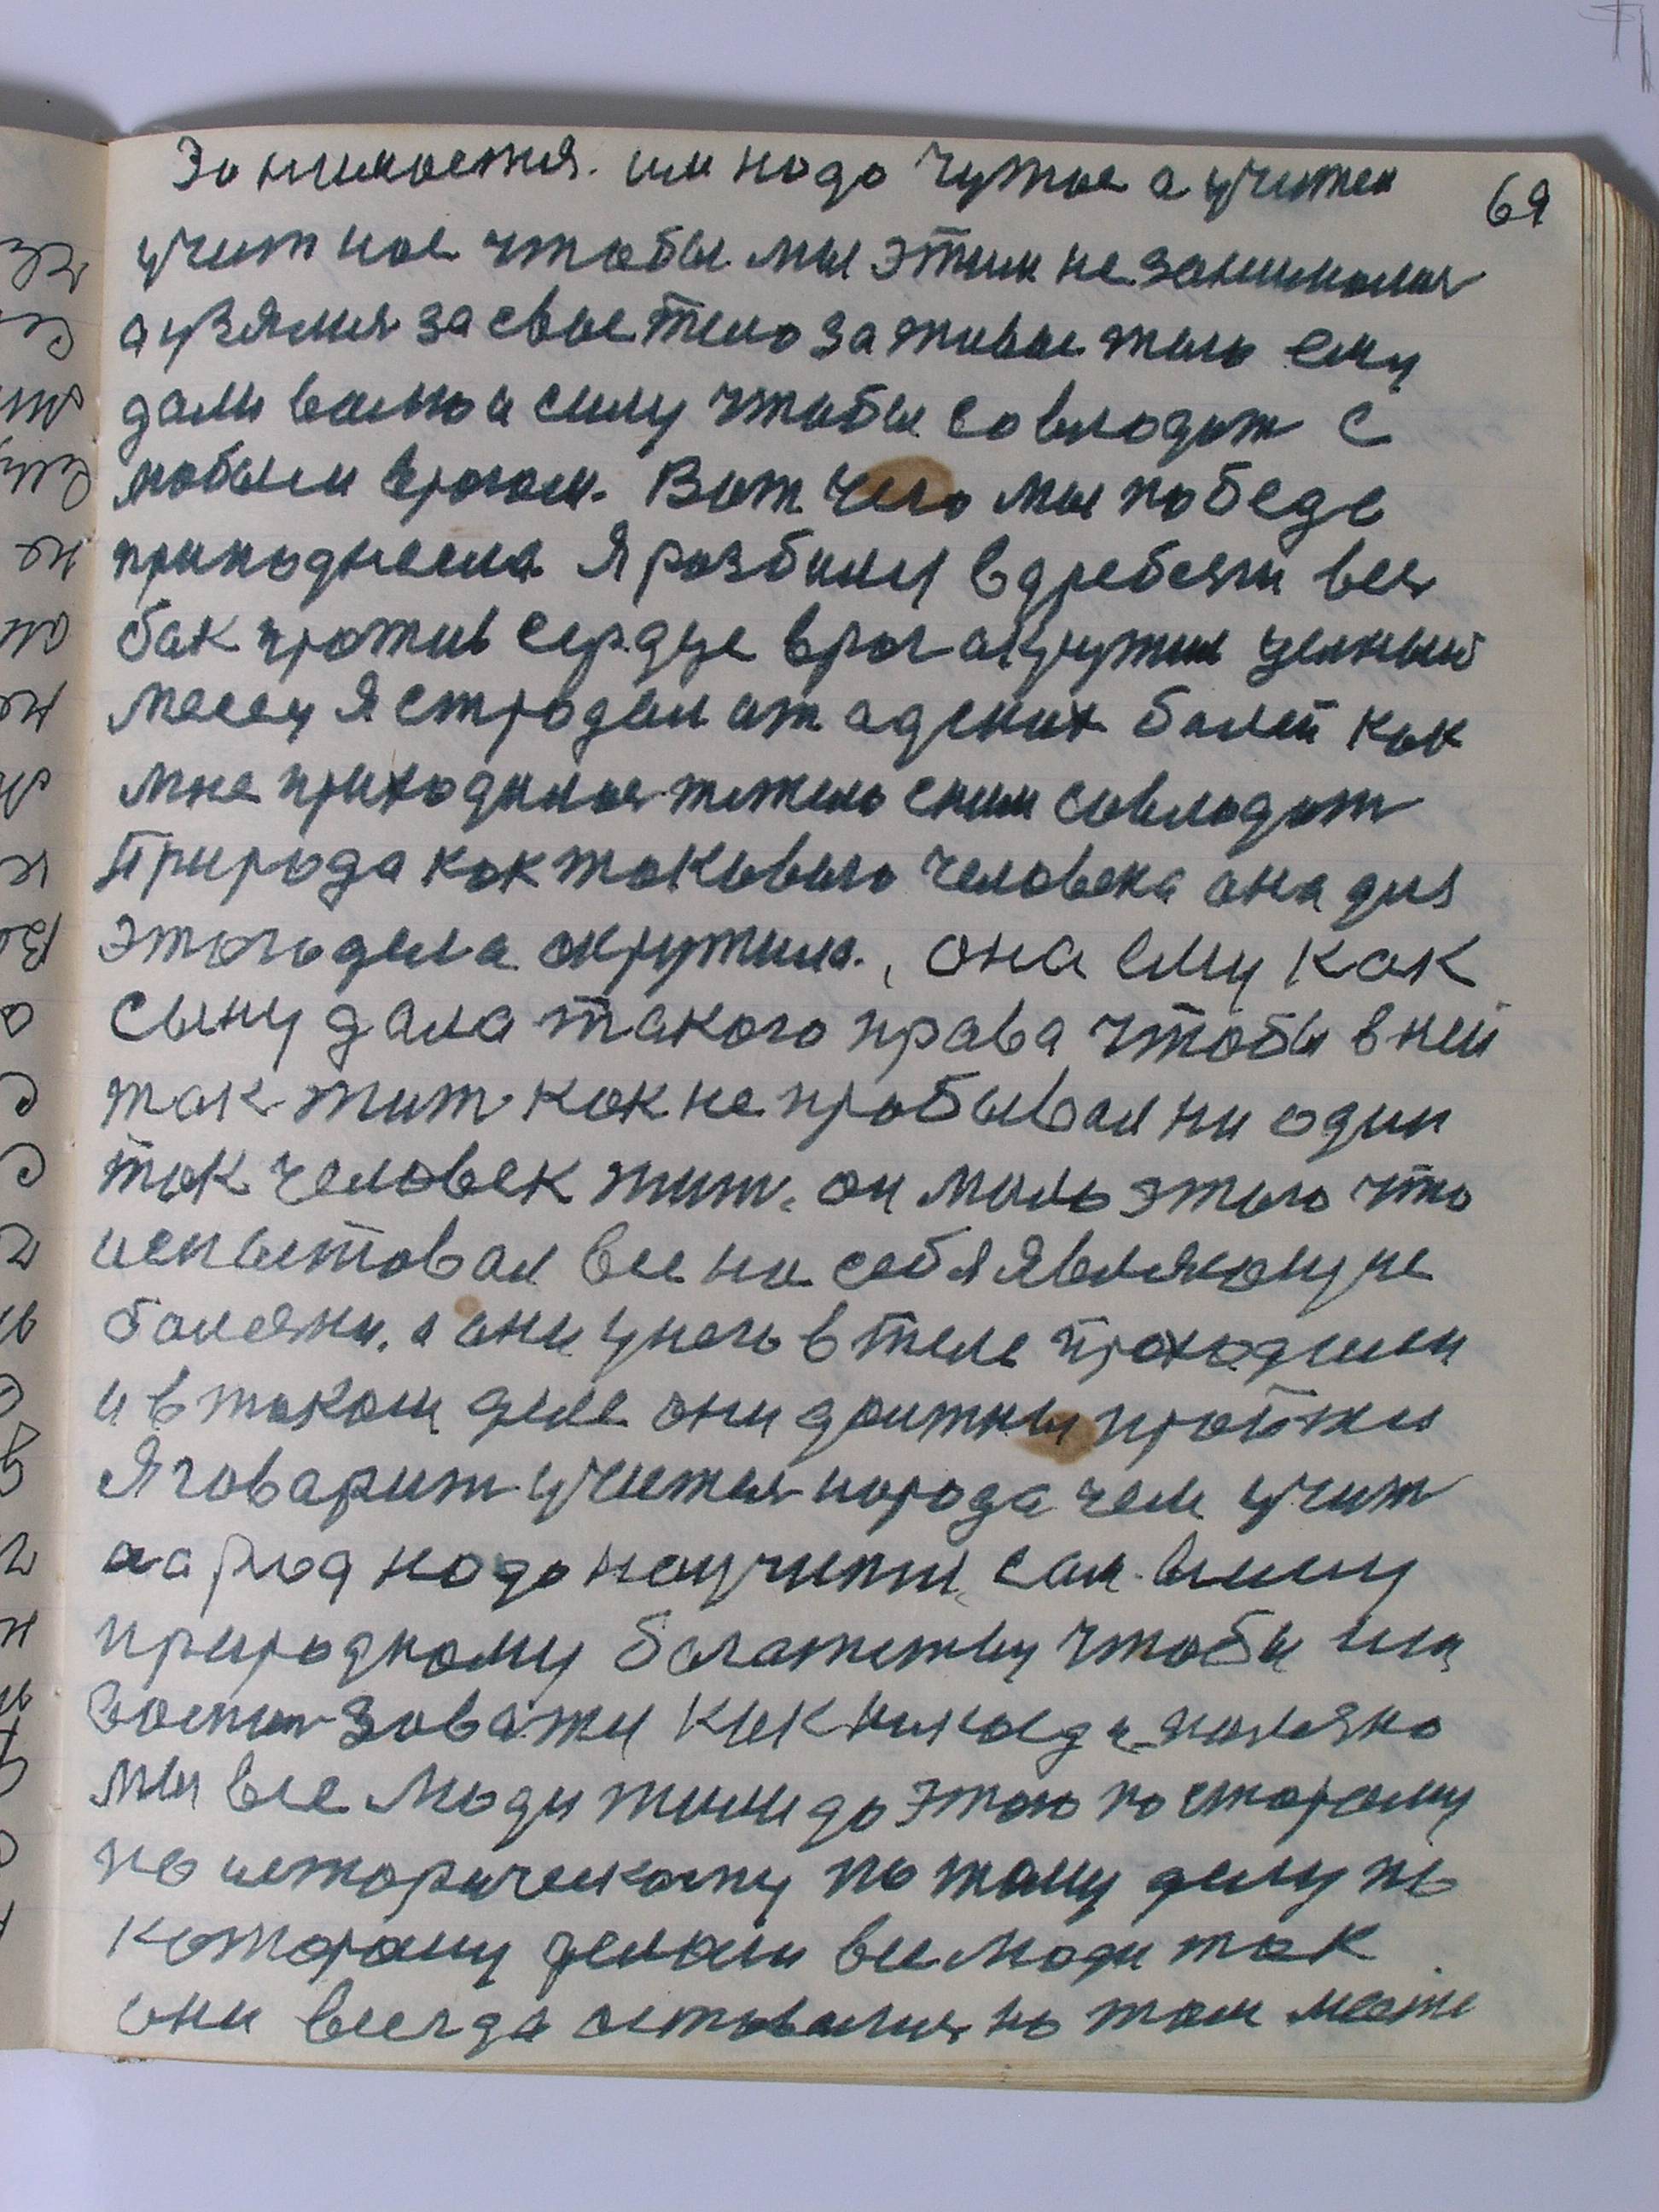 69
Занимается. им надо чужое а учител
учит нас чтобы мы этим не занимались
а узялися за свое тело за живое тело ему
дали волю и силу чтобы совладат с
любым врогом. Вот чего мы победе
приподнесла Я розбилил вдребезги вся
бак против сердце враг окружил целный
месец Я стродал от адских болей как
мне приходилося тяжело сним совладат
Природа как токового человека она для
этого дела окружила, она ему как
сыну дала такого права чтобы в ней
так жит как не пробывал ни один
так человек жит. он мало этого что
испытовал все на себя являющие
болезни. а они унего в теле проходили
и в таком деле они должны пройти
Я говарит учителя народа чем учит
народ надо научится сам всему
природному богатству чтобы им
ползоватся как никогда полезно
мы все люди жили до этого по старому
по историческому по тому делу по
которому делали все люди так
они всегда оставались на том месте